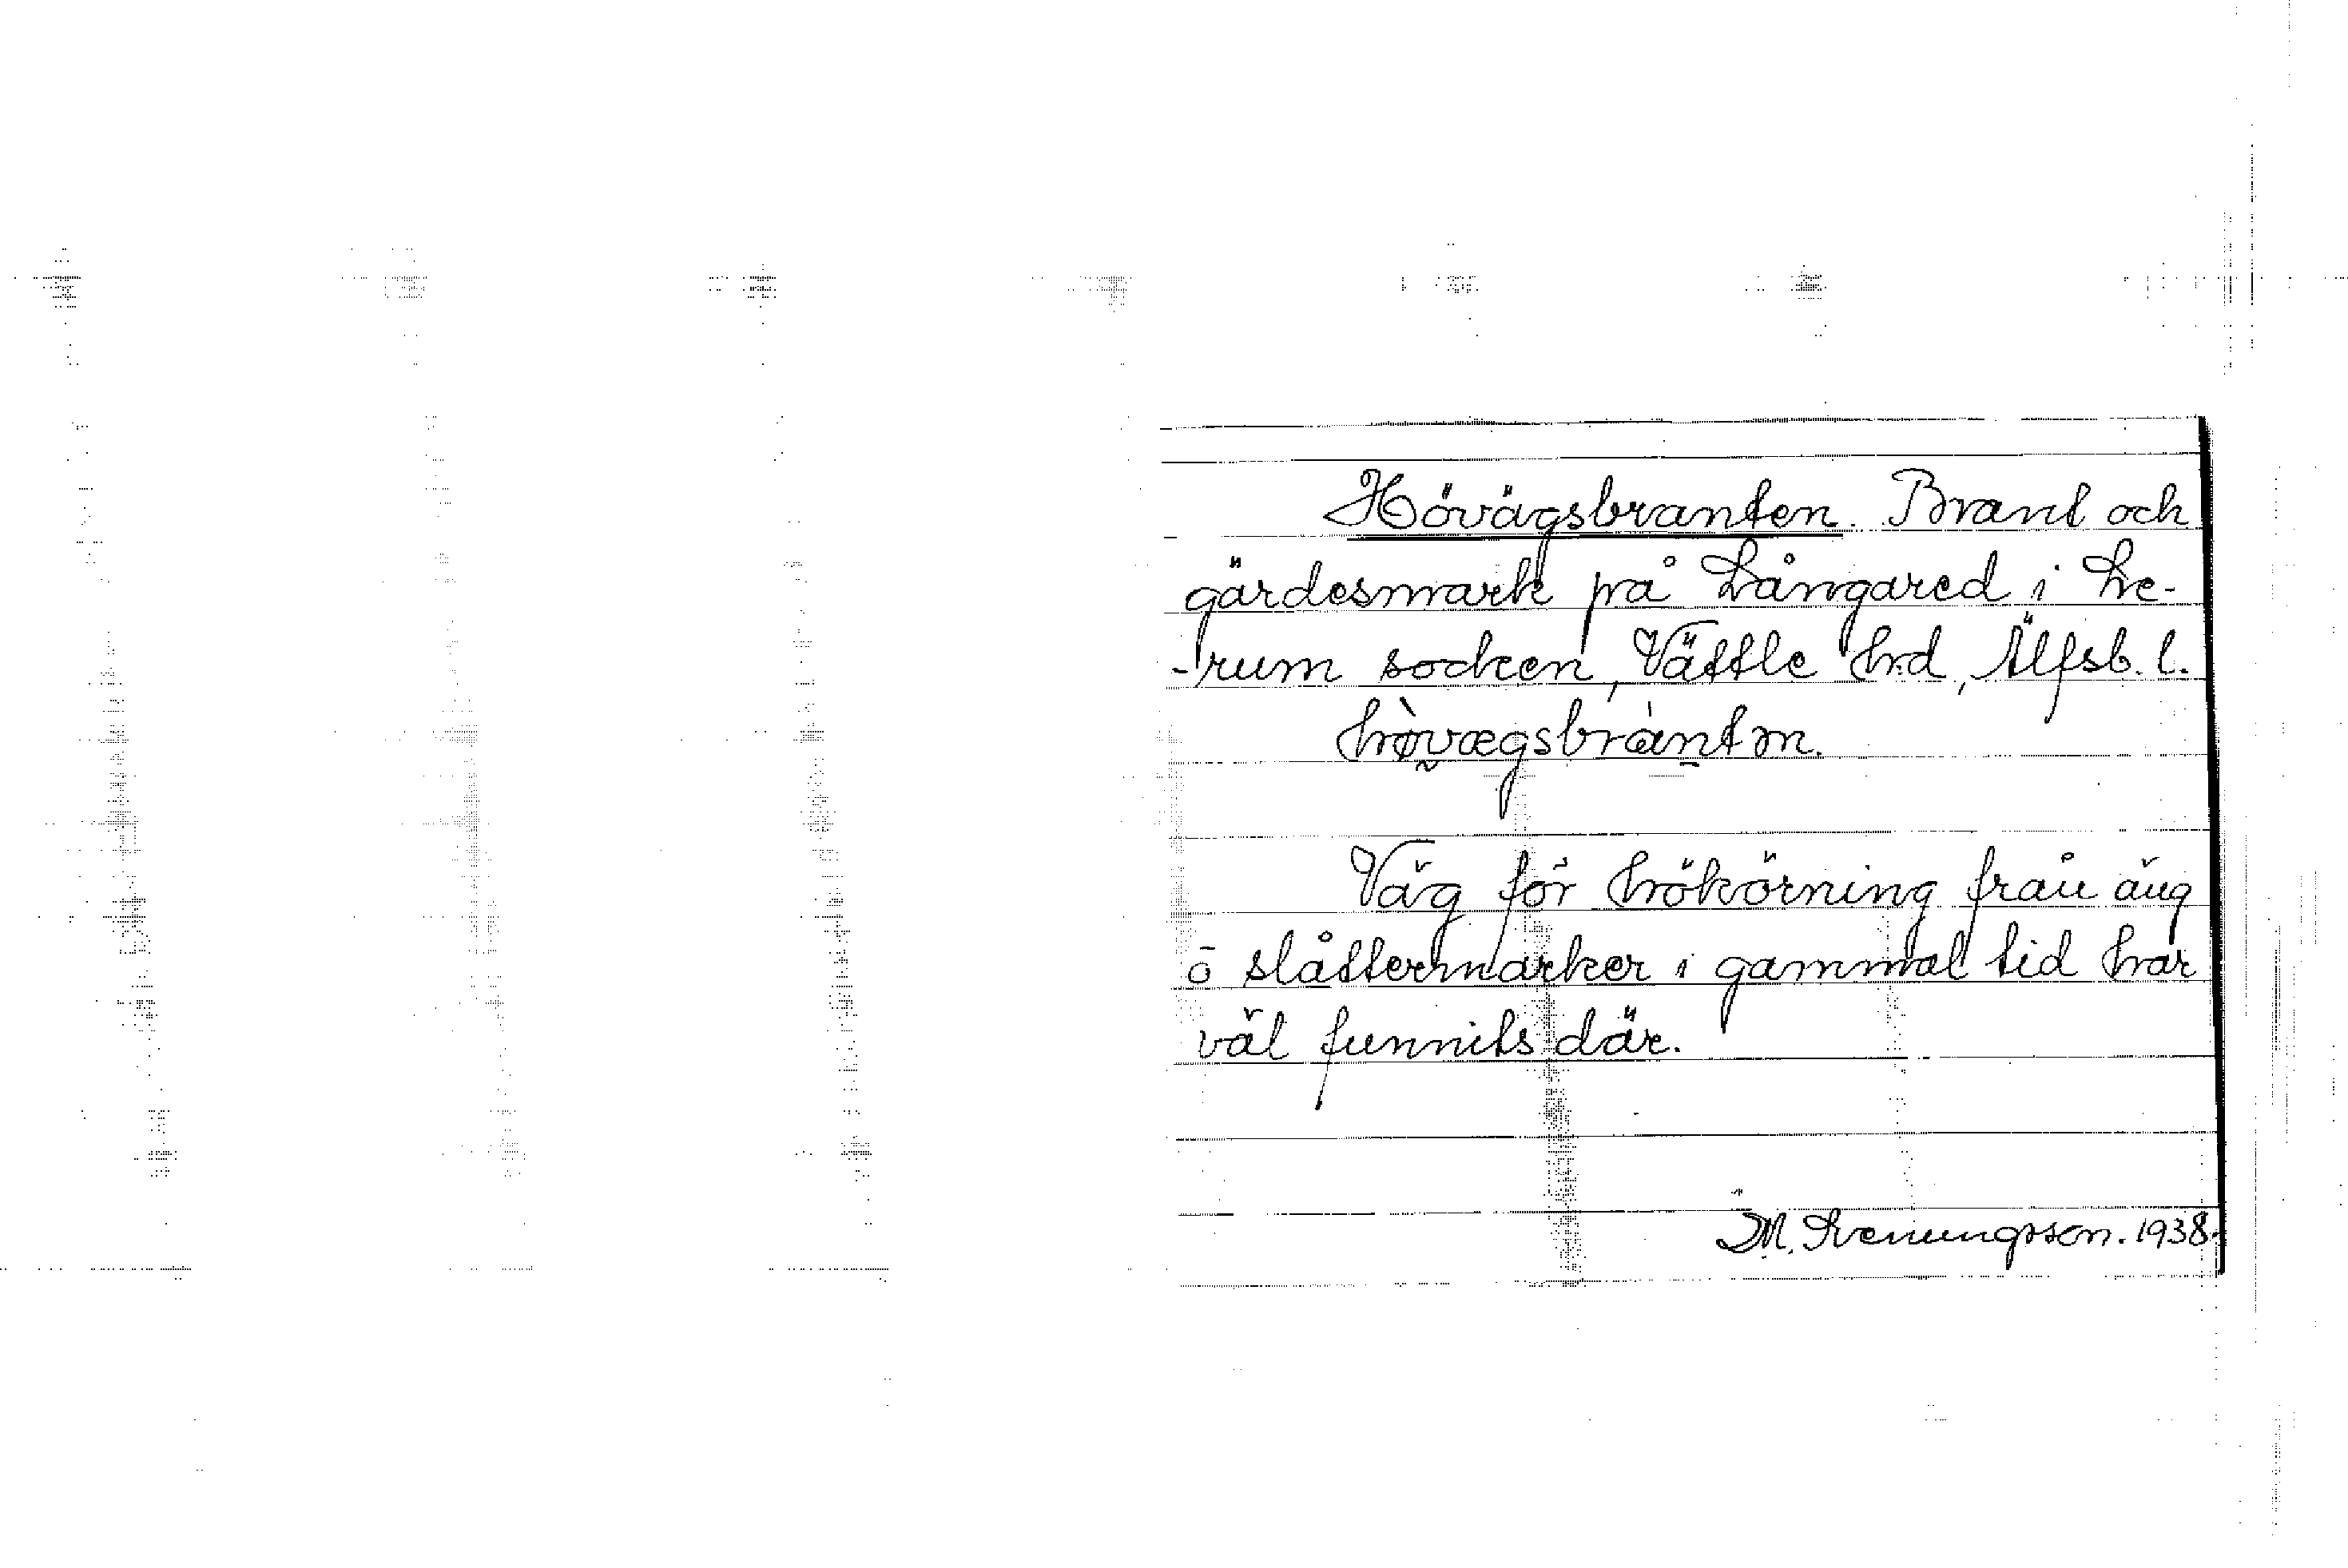 Hövägsbranten. Brant och
gärdesmark på Långared i Le-
-rum socken, Vättle hd, Älfsb. l.
hòvægsbràntən.
Väg för hökörning från äng
o slåttermarker i gammal tid har
väl funnits där.
M. Svenungsson. 1938.